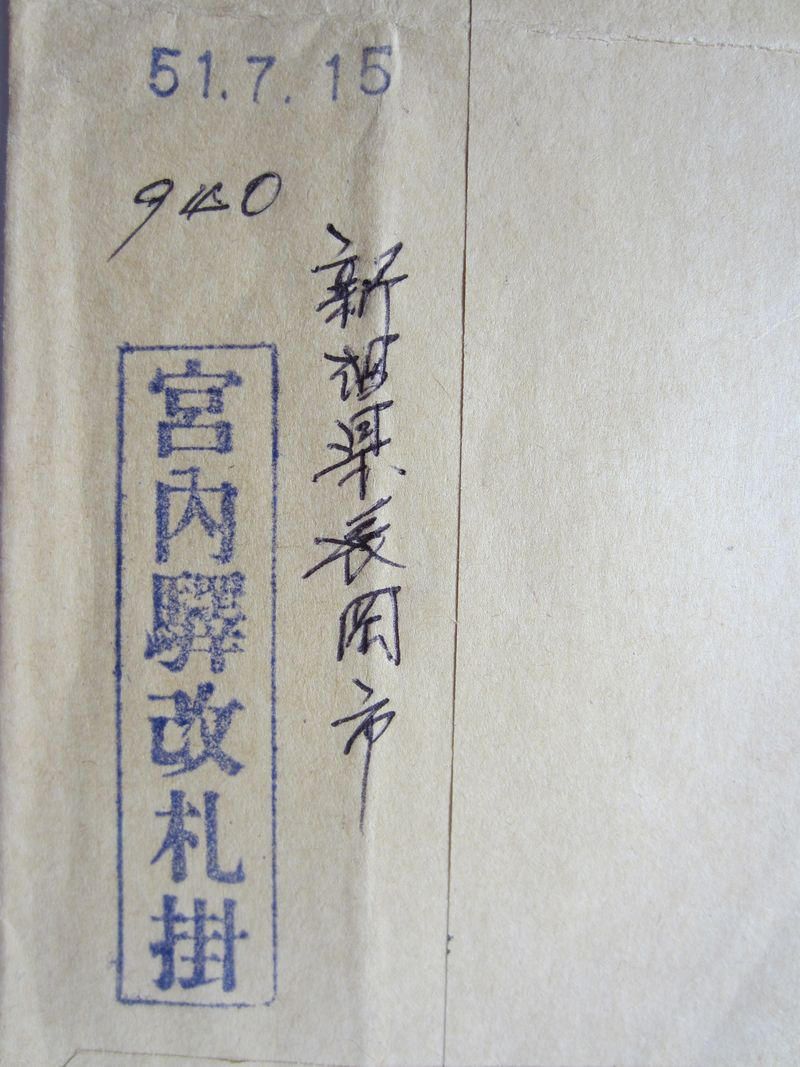 51.7.15
940
新潟県長岡市
宮内驛改札掛